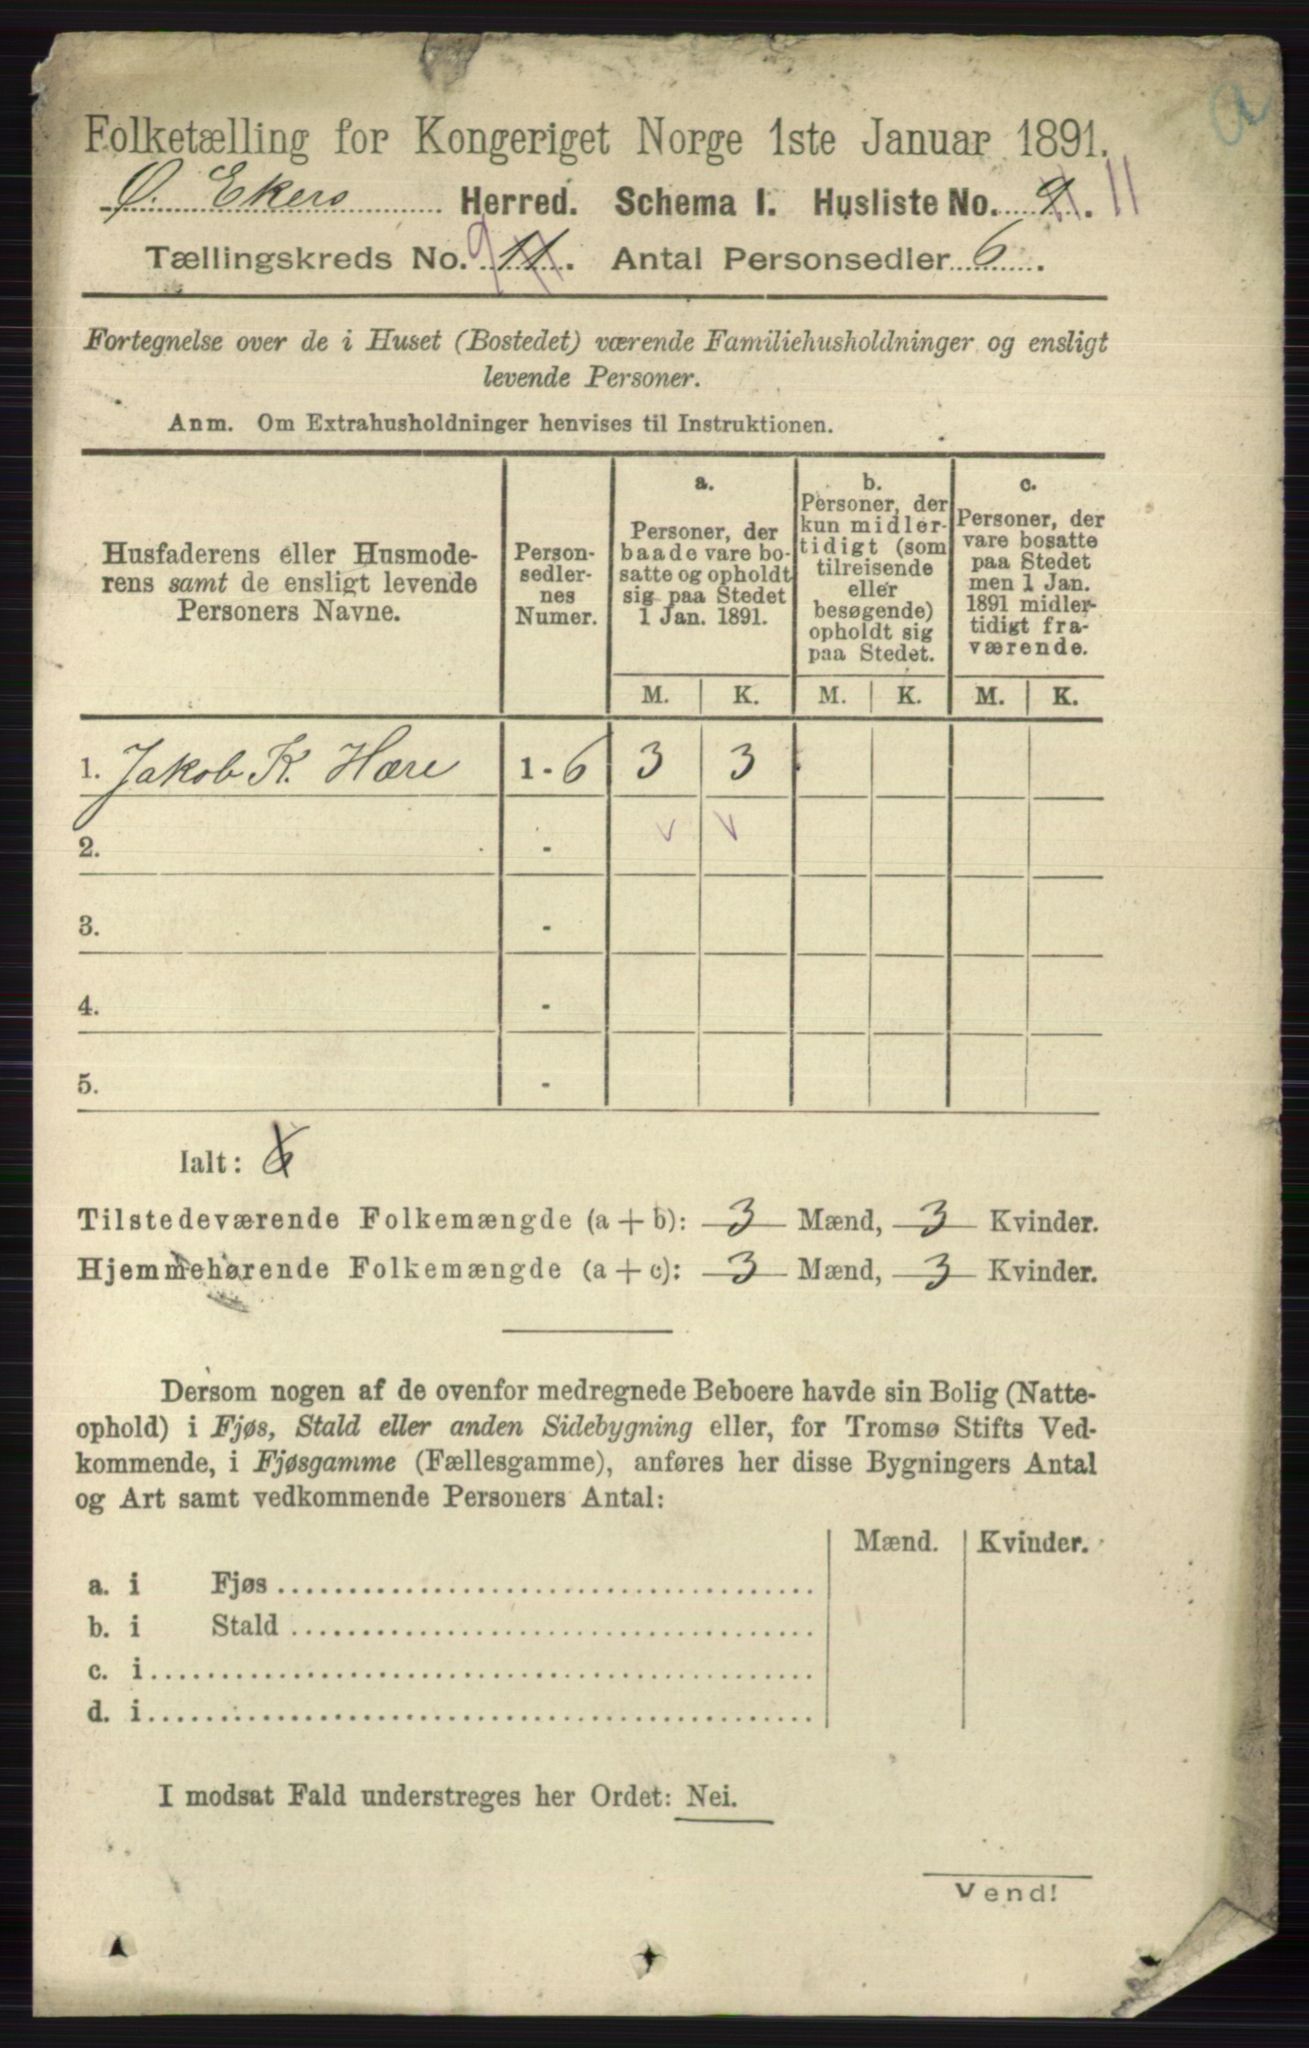 a
Folketælling for Kongeriget Norge 1ste Januar 1891.
Ø. Ekers Herred. Schema I. Husliste No. 9. 11
Tællingskreds No. 9 11. Antal Personsedler 6.
Fortegnelse over de i Huset (Bostedet) værende Familiehusholdninger og ensligt
levende Personer.
Anm. Om Extrahusholdninger henvises til Instruktionen.
Husfaderens eller Husmode-
rens samt de ensligt levende
Personers Navne.
Person-
sedler-
nes
Numer.
a.
Personer, der
baade vare bo-
satte og opholdt
sig paa Stedet
1 Jan. 1891.
b.
Personer, der
kun midler-
tidigt (som
tilreisende
eller
besøgende)
opholdt sig
paa Stedet.
c.
Personer, der
vare bosatte
paa Stedet
men 1 Jan.
1891 midler-
tidigt fra-
værende.
M. K. M. K. M. K.
1. Jakob K. Hære 1 - 6 3 3
2. -
3. -
4. -
5. -
Ialt: 6
Tilstedeværende Folkemængde (a + b): 3 Mænd, 3 Kvinder.
Hjemmehørende Folkemængde (a + c): 3 Mænd, 3 Kvinder.
Dersom nogen af de ovenfor medregnede Beboere havde sin Bolig (Natte-
ophold) i Fjøs, Stald eller anden Sidebygning eller, for Tromsø Stifts Ved-
kommende, i Fjøsgamme (Fællesgamme), anføres her disse Bygningers Antal
og Art samt vedkommende Personers Antal:
Mænd. Kvinder.
a. i Fjøs
b. i Stald
c. i
d. i
I modsat Fald understreges her Ordet: Nei.
Vend!